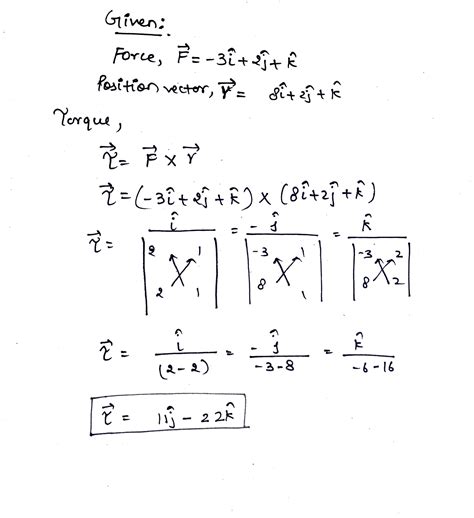 Given:
Force, F⃗ = -3î + 2ĵ + k̂
Position vector, r⃗ = 8î + 2ĵ + k̂
Torque,
τ⃗ = F⃗ × r⃗
τ⃗ = (-3î + 2ĵ + k̂) × (8î + 2ĵ + k̂)
τ⃗ = î / |2 1; 2 1| = -ĵ / |-3 1; 8 1| = k̂ / |-3 2; 8 2|
τ⃗ = î / (2-2) = -ĵ / -3-8 = k̂ / -6-16
τ⃗ = 11ĵ - 22k̂